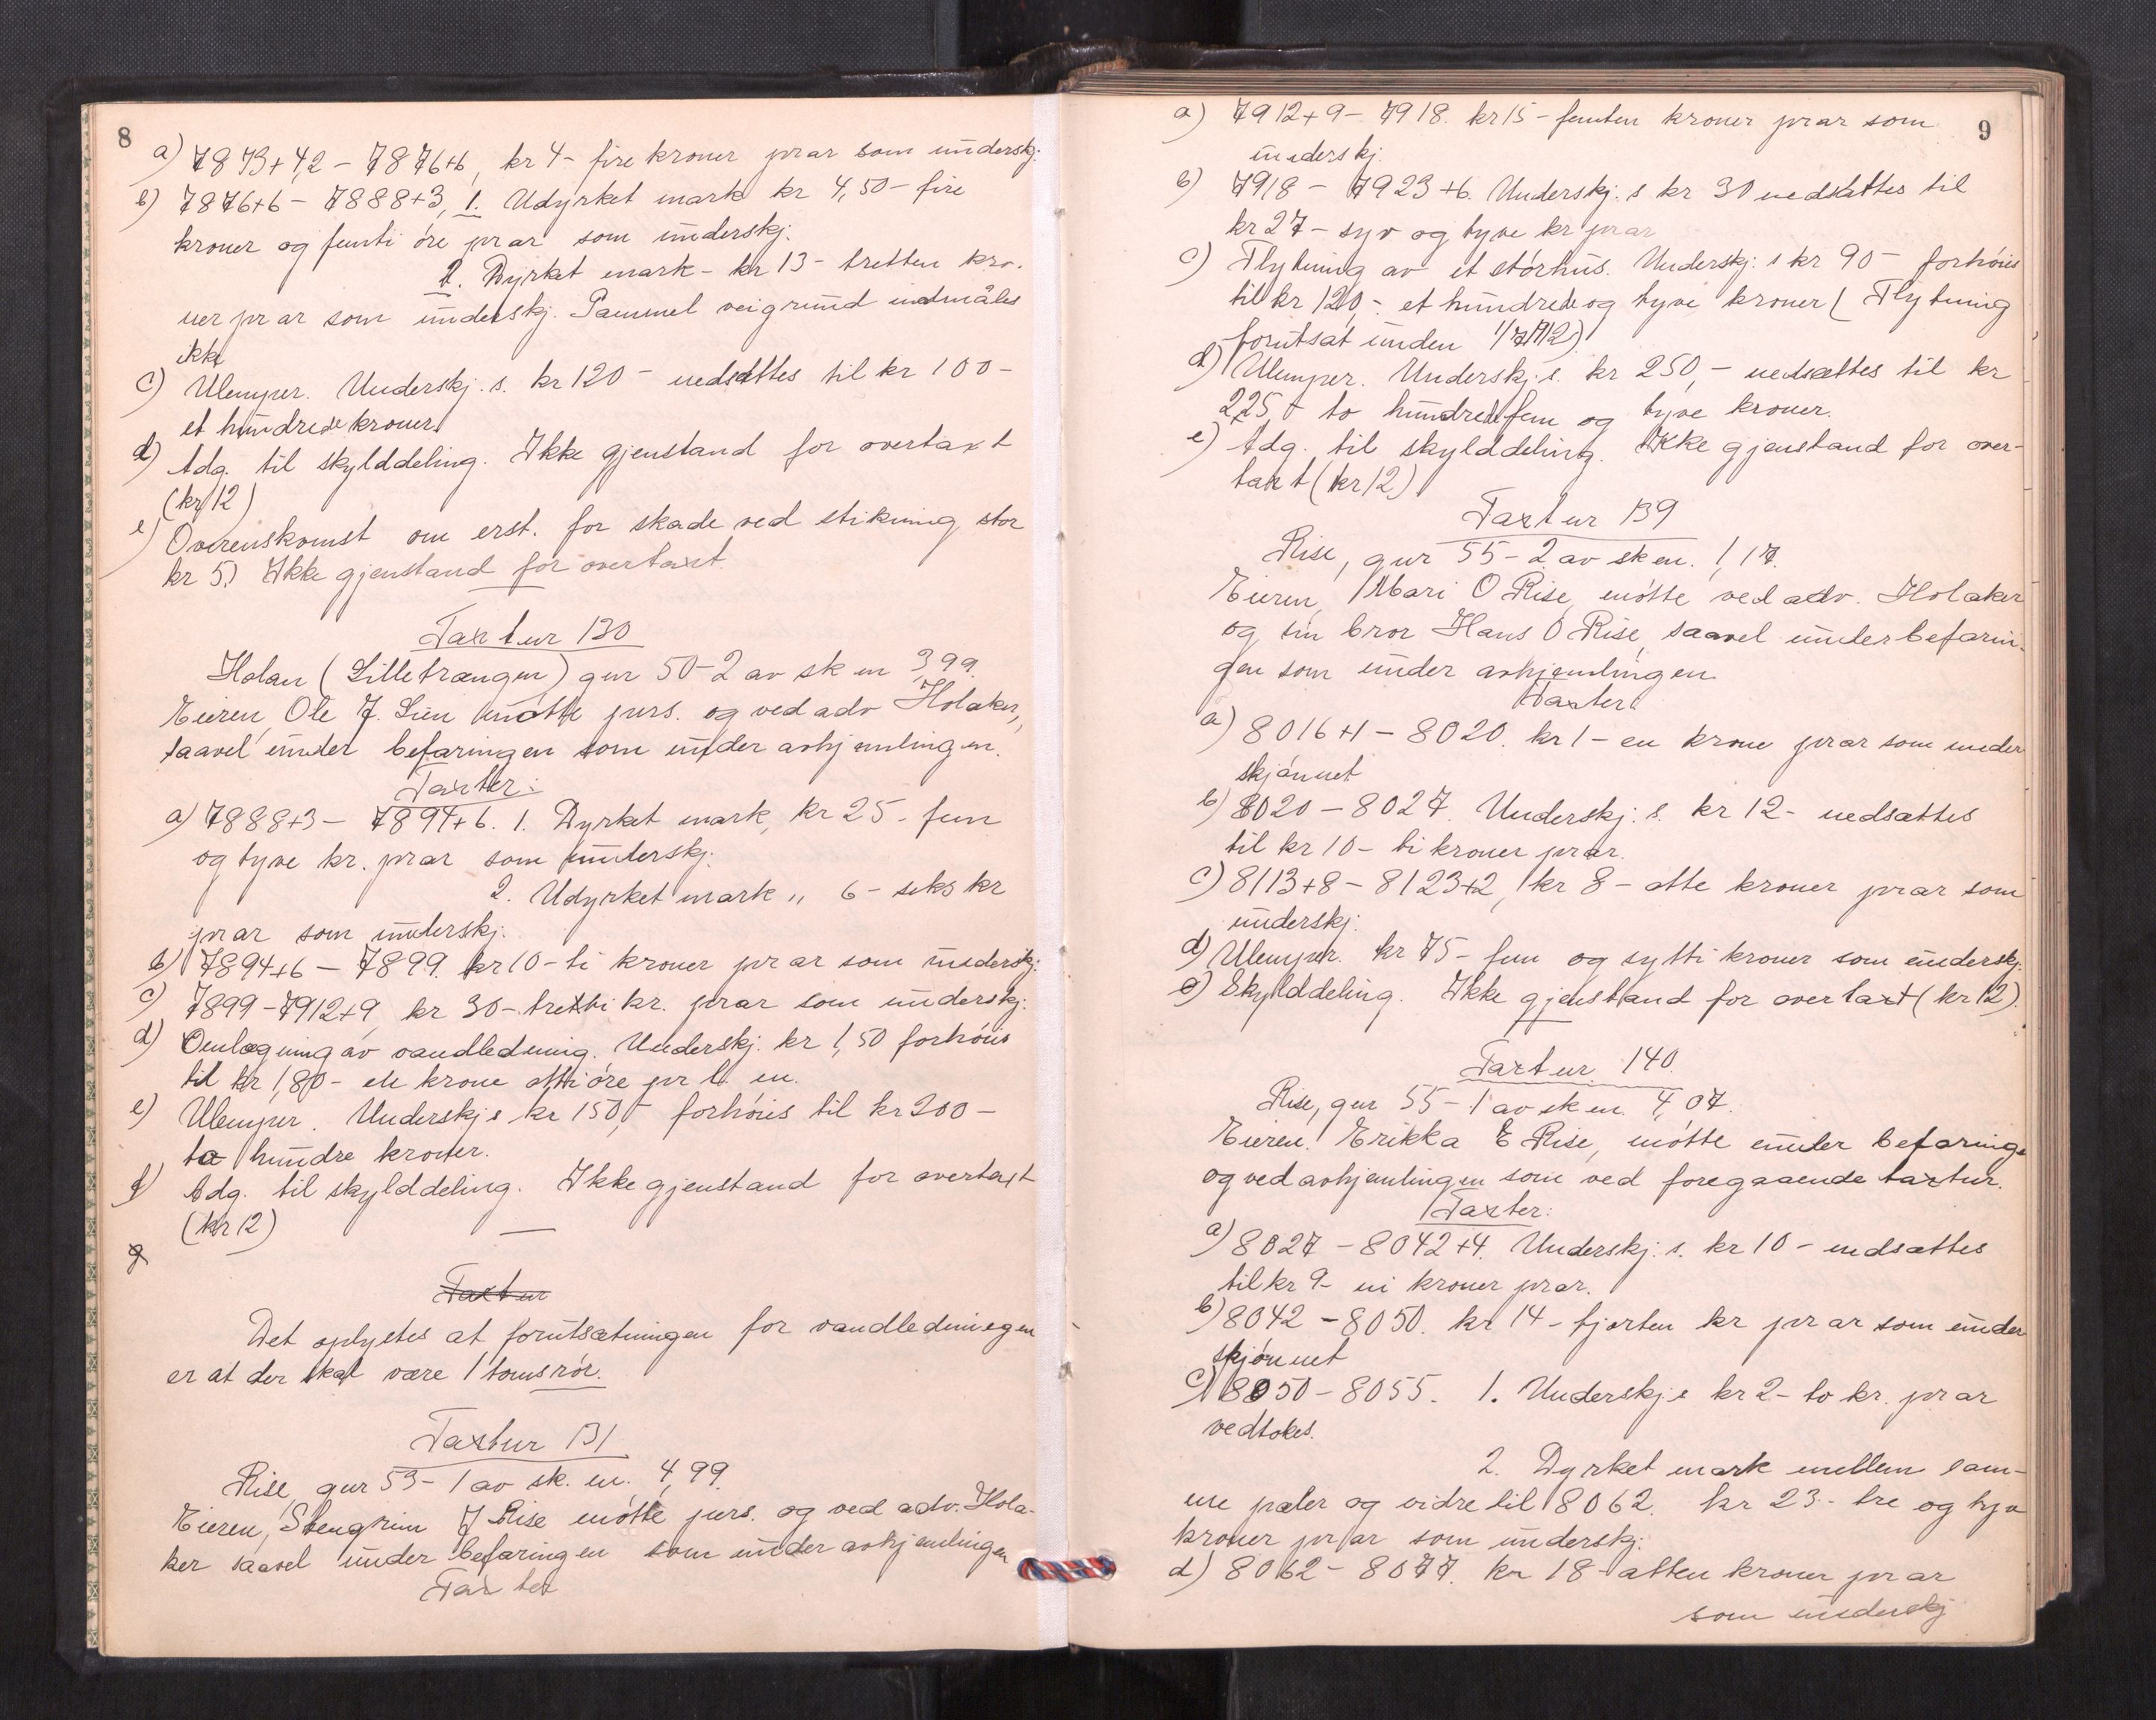 8
a) 7873+4,2 - 7876+6, kr 4 - fire kroner pr ar som underskj.
b) 7876+6 - 7888+3, 1. Udyrket mark kr 4,50 - fire
kroner og femti öre pr ar som underskj.
2. Dyrket mark - kr 13 - tretten kro-
ner pr ar som underskj. Gammel veigrund indmåles
ikke
c) Ulemper. Underskj. s. kr 120 - nedsættes til kr 100 -
et hundrede kroner.
d) Adg. til skylddeling. Ikke gjenstand for overtaxt
(kr 12)
e) Overenskomst om erst. for skade ved stikning, stor
kr 5.) Ikke gjenstand for overtaxt.
Taxtnr 130
Holan (Lilletrangen) gnr 50-2 av sk en 3,99.
Eieren, Ole J. Lien mötte pers. og ved adv Holaker,
saavel under befaringen som under avhjemlingen.
Taxter:
a) 7888+3 - 7894+6. 1. Dyrket mark, kr 25 - fem
og tyve kr. pr ar som underskj.
2. Udyrket mark " 6 - seks kr
pr ar som underskj.
b) 7894+6 - 7899. kr 10 - ti kroner pr ar som underskj.
c) 7899 - 7912+9, kr 30 - tretti kr. pr ar som underskj.
d) Omlægning av vandledning. Underskj. kr 1,50 forhöies
til kr 1,80 - en krone otti öre pr l. m.
e) Ulemper. Underskj s kr 150,- forhöies til kr 200 -
to hundre kroner.
f) Adg. til skylddeling. Ikke gjenstand for overtaxt
(kr 12)
g
Taxtnr
Det oplystes at forutsætningen for vandledningen
er at der skal være 1 tomsrör.
Taxtnr 131
Rise, gnr 53-1 av sk. en. 4,99.
Eieren, Stengrim J Rise mötte pers. og ved adv. Hola-
ker saavel under befaringen som under avhjemlingen
Taxter
9
a) 7912+9 - 7918. kr 15 - femten kroner pr ar som
underskj.
b) 7918 - 7923+6. Underskj. s kr 30 nedsættes til
kr 27 - syv og tyve kr pr ar
c) Flytning av et störhus. Underskj. s kr 90 - forhöies
til kr 120,- et hundrede og tyve kroner (Flytning
forutsat inden 1/7 1912)
d) Ulemper. Underskj. s. kr 250,- nedsættes til kr
225,- to hundrede fem og tyve kroner.
e) Adg. til skylddeling. Ikke gjenstand for over-
taxt (kr 12)
Taxtnr 139
Rise, gnr 55-2 av sk en. 1,17.
Eieren, Mari O Rise, mötte ved adv. Holaker
og sin bror Hans O Rise, saavel under befarin-
gen som under avhjemlingen.
Taxter:
a) 8016+1 - 8020. kr 1 - en krone pr ar som under
skjönnet
b) 8020 - 8027. Underskj. s. kr 12 - nedsættes
til kr 10 - ti kroner pr ar.
c) 8113+8 - 8123+2, kr 8 - otte kroner pr ar som
underskj.
d) Ulemper. kr 75 - fem og sytti kroner som underskj.
e) Skylddeling. Ikke gjenstand for overtaxt (kr 12).
Taxtnr 140.
Rise, gnr 55-1 av sk en. 4,07.
Eieren. Erikka E Rise, mötte under befaringe
og ved avhjemlingen som ved foregaaende taxtnr.
Taxter:
a) 8027 - 8042+4. Underskj. s. kr 10 - nedsættes
til kr 9 - ni kroner pr ar.
b) 8042 - 8050. kr 14 - fjorten kr pr ar som under
skjönnet
c) 8050 - 8055. 1. Underskj. s kr 2 - to kr. pr ar
vedtokes.
2. Dyrket mark mellem sam-
me pæler og vidre til 8062. kr 23 - tre og tyve
kroner pr ar som underskj.
d) 8062 - 8077. kr 18 - atten kroner pr ar
som underskj